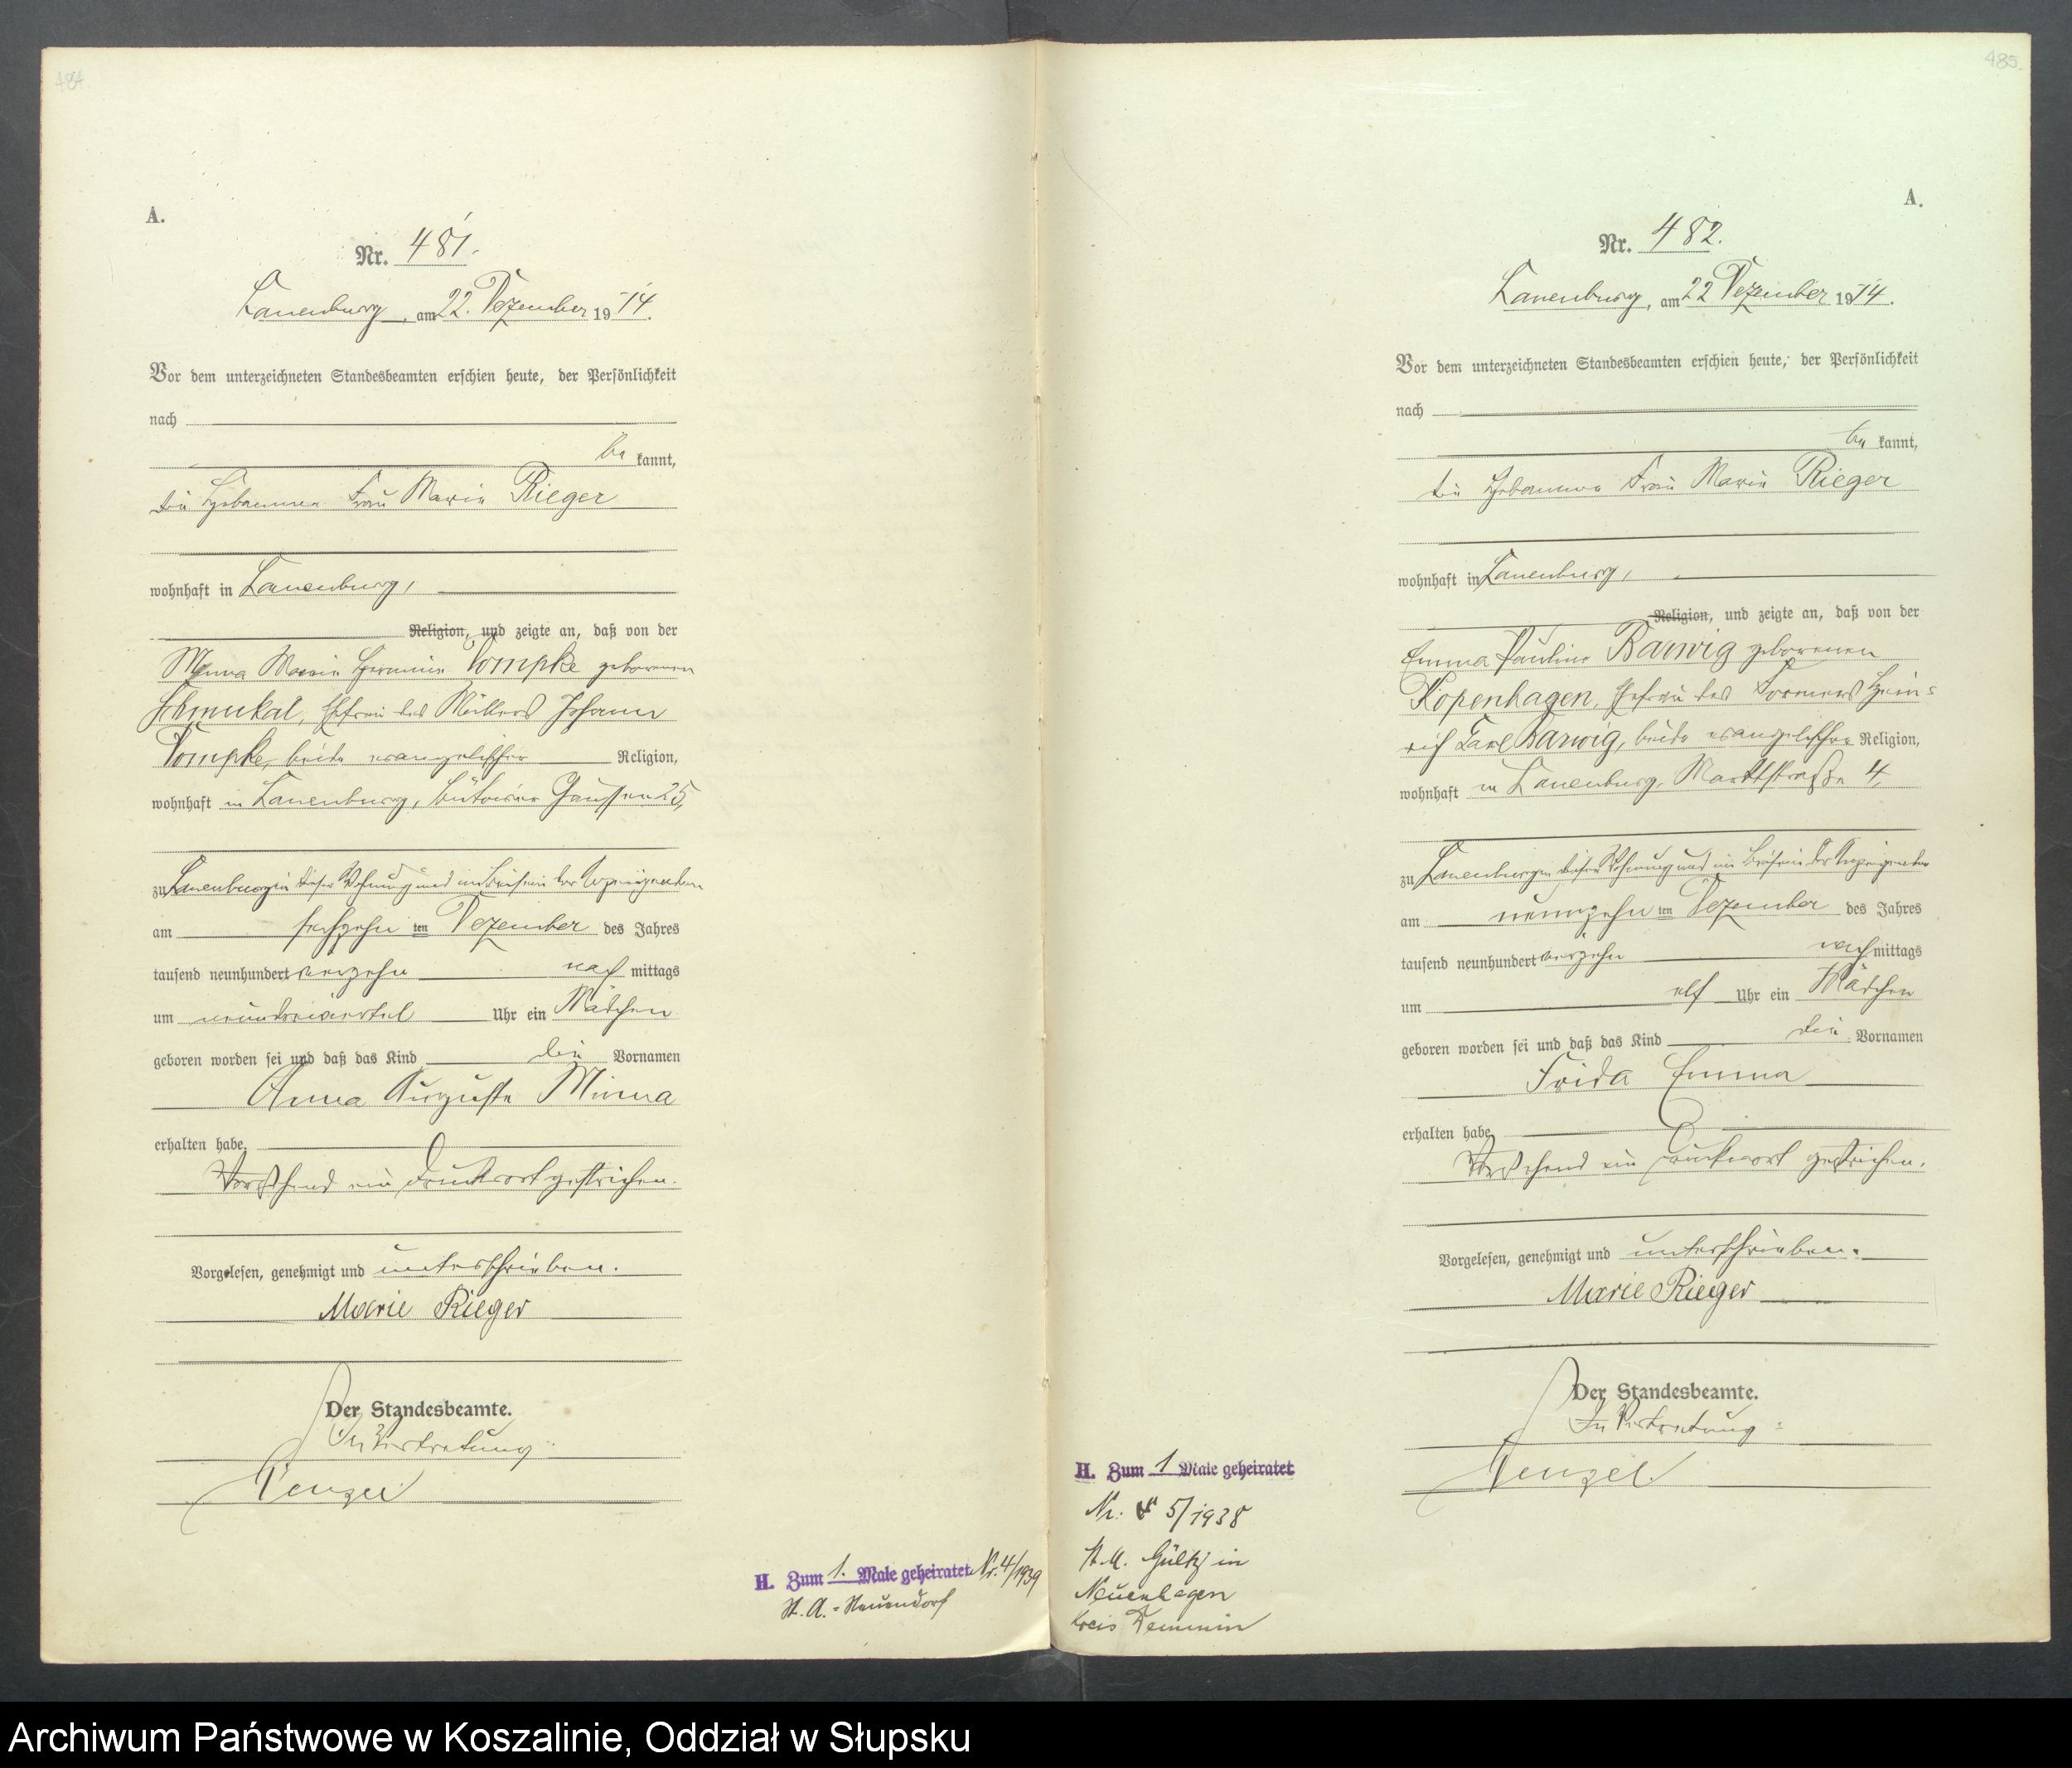 484
A.
Nr. 481.
Lauenburg, am 22. Dezember 1914.
Vor dem unterzeichneten Standesbeamten erschien heute, der Persönlichkeit
nach
be kannt,
die Hebamme Frau Marie Rieger
wohnhaft in Lauenburg,
Religion, und zeigte an, daß von der
Marie Hermine Pompke geborenen
Schmukal, Ehefrau des Müllers Johann
Pompke, beide evangelischer Religion,
wohnhaft in Lauenburg, Bütower Chaussee 25,
zu Lauenburg in dieser Wohnung und im Beisein der Anzeigenden
am sechszehn ten Dezember des Jahres
tausend neunhundert vierzehn nach mittags
um neundreiviertel Uhr ein Mädchen
geboren worden sei und daß das Kind die Vornamen
Anna Auguste Minna
erhalten habe.
Vorstehend ein Druckwort gestrichen.
Vorgelesen, genehmigt und unterschrieben.
Marie Rieger
Der Standesbeamte.
In Vertretung:
Wenzel
H. Zum 1. Male geheiratet Nr. 4/1939
St. A. = Neuendorf
485.
A.
Nr. 482.
Lauenburg, am 22 Dezember 1914.
Vor dem unterzeichneten Standesbeamten erschien heute, der Persönlichkeit
nach
be kannt,
die Hebamme Frau Marie Rieger
wohnhaft in Lauenburg,
Religion, und zeigte an, daß von der
Emma Pauline Barwig geborenen
Kopenhagen, Ehefrau des Formers Hein=
rich Carl Barwig, beide evangelischer Religion,
wohnhaft in Lauenburg, Marktstraße 4,
zu Lauenburg in dieser Wohnung und im Beisein der Anzeigenden
am neunzehn ten Dezember des Jahres
tausend neunhundert vierzehn nach mittags
um elf Uhr ein Mädchen
geboren worden sei und daß das Kind die Vornamen
Frida Emma
erhalten habe.
Vorstehend ein Druckwort gestrichen.
Vorgelesen, genehmigt und unterschrieben.
Marie Rieger
Der Standesbeamte.
In Vertretung:
Wenzel
H. Zum 1 Male geheiratet
Nr. 5/1938
St. A. Gültz in
Neuenhagen
Kreis Demmin
Archiwum Państwowe w Koszalinie, Oddział w Słupsku